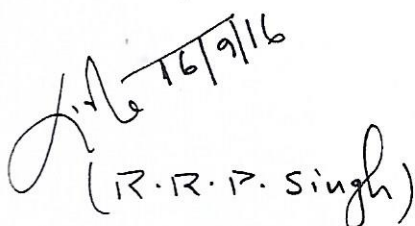 16/9/16
(R.R.P. Singh)